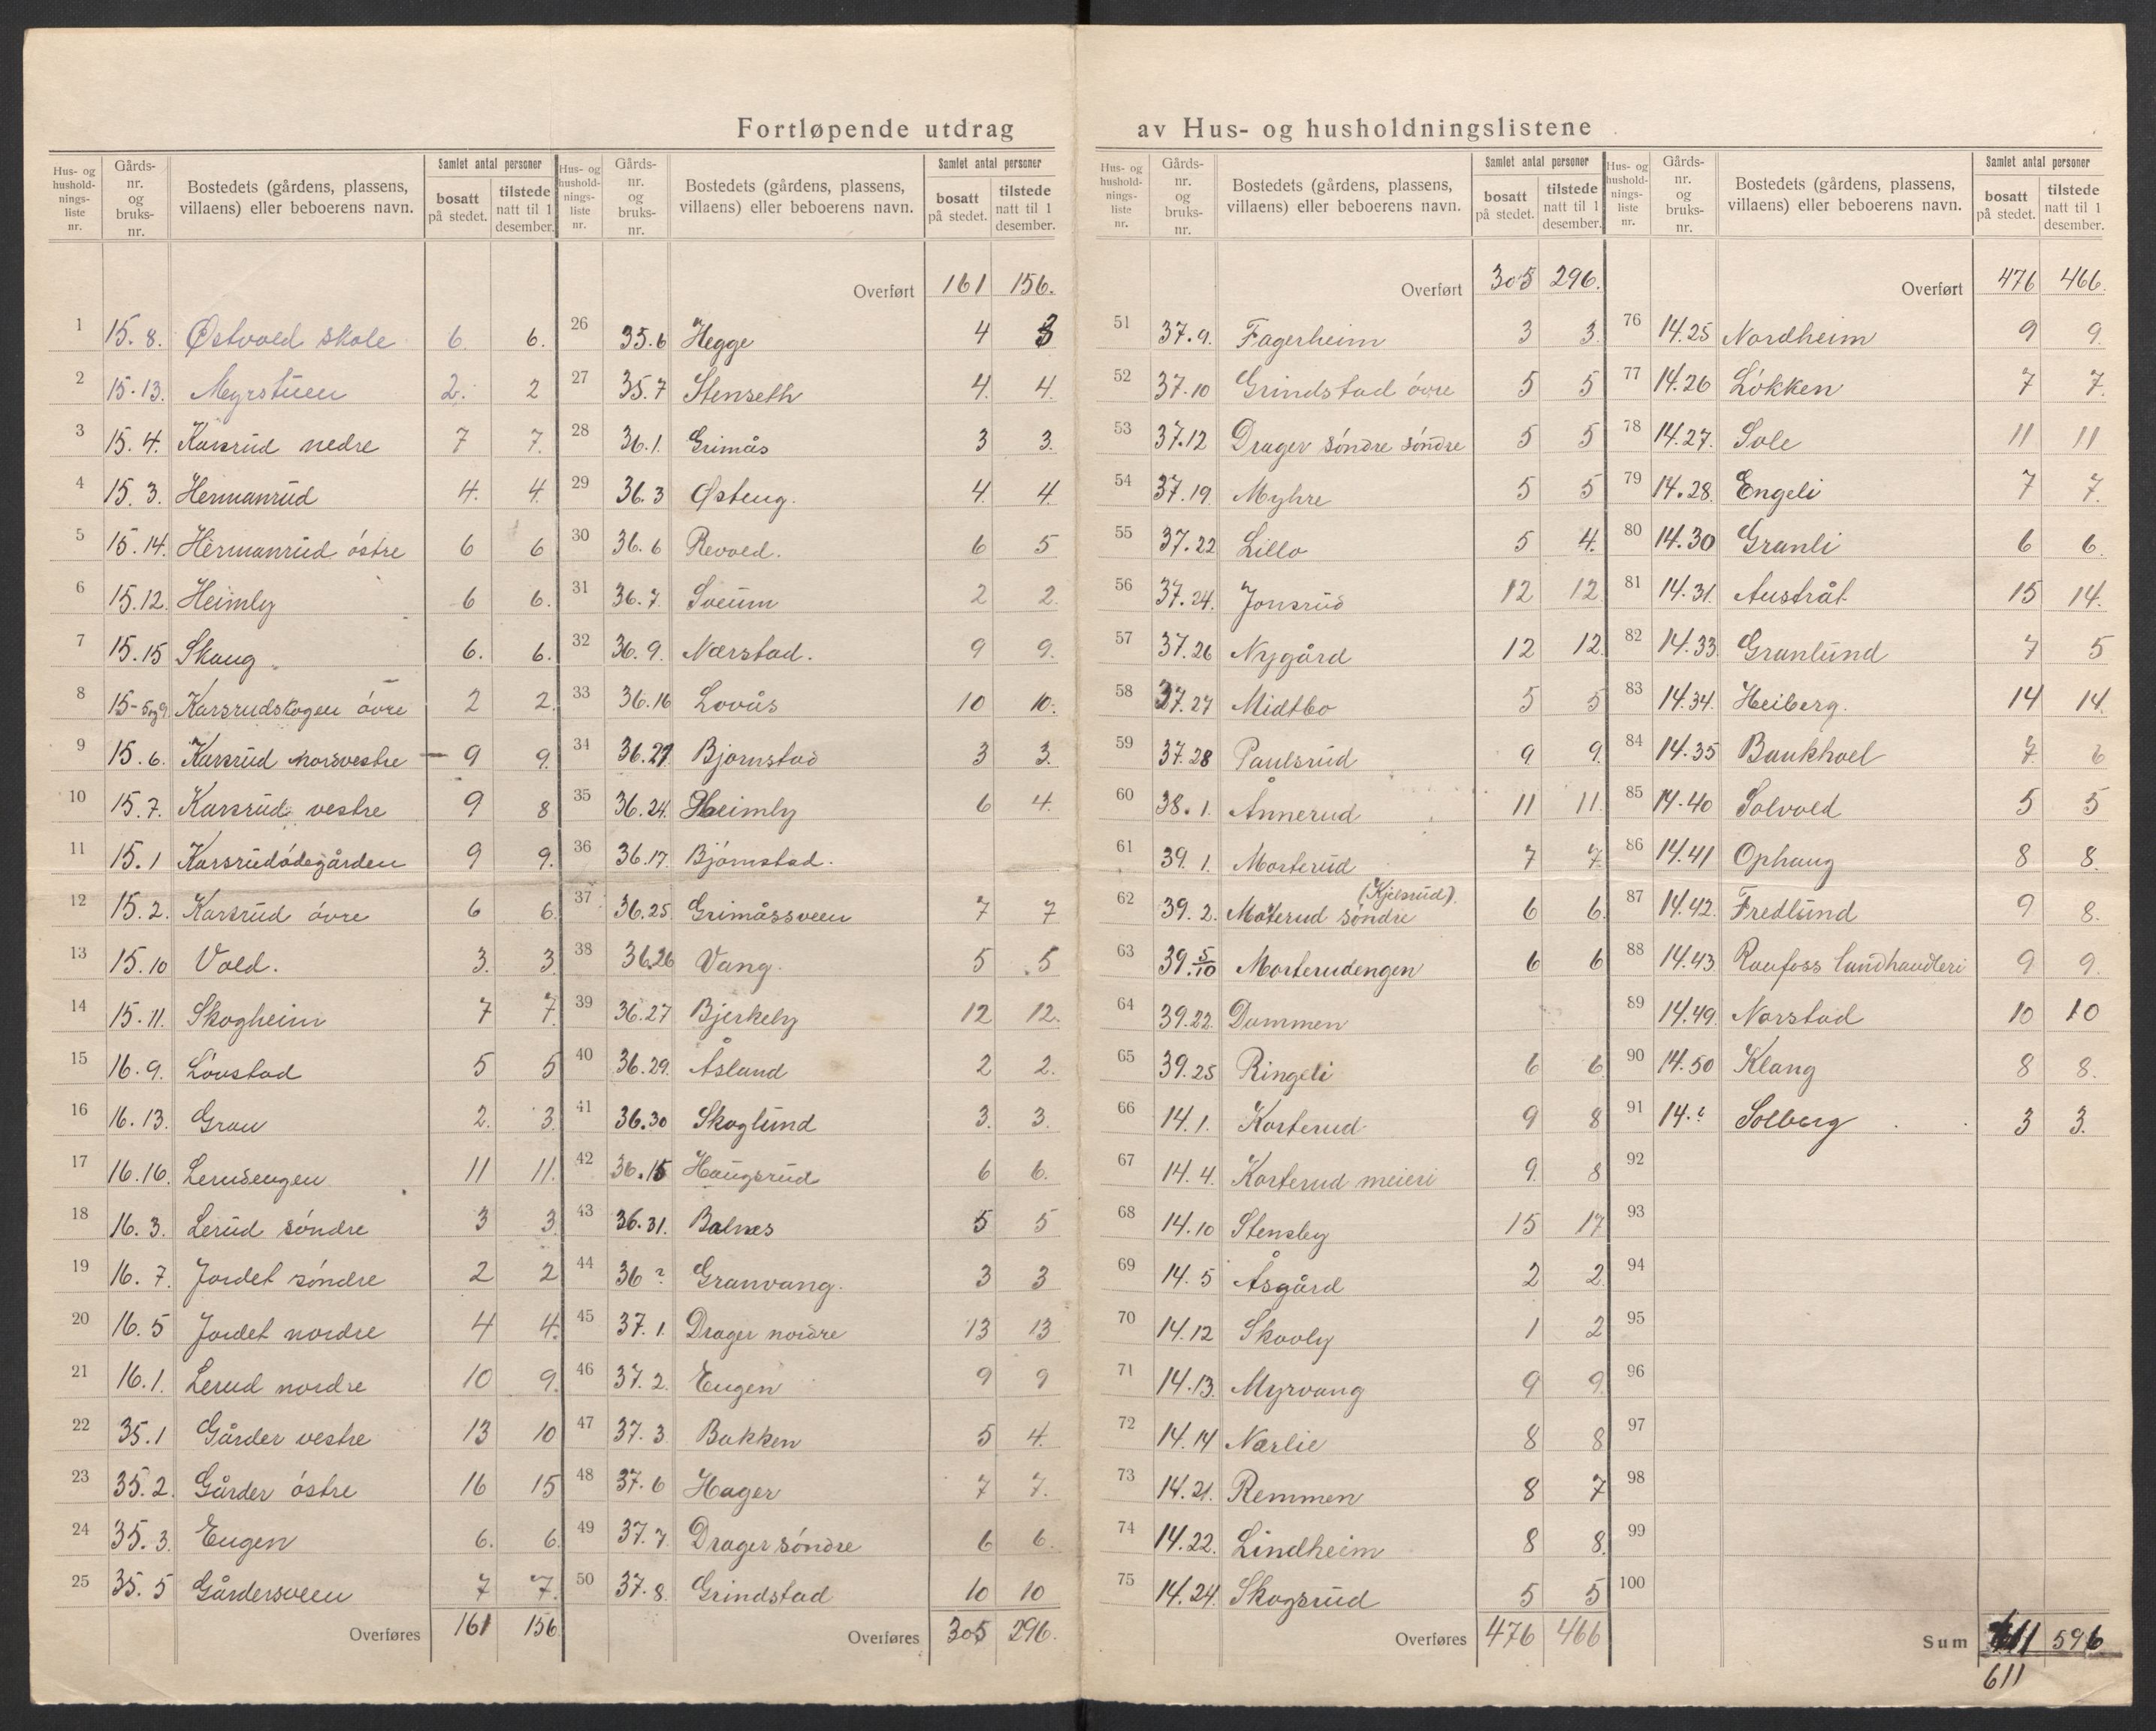 Fortløpende utdrag av Hus- og husholdningslistene
Hus- og husholdnings-liste nr. Gårds-nr. og bruks-nr. Bostedets (gårdens, plassens, villaens) eller beboerens navn. Samlet antal personer bosatt på stedet. tilstede natt til 1 desember.
1 15.8. Østvold skole 6 6.
2 15.13. Myrstuen 2. 2
3 15.4. Karsrud nedre 7 7.
4 15.3. Hermanrud 4. 4.
5 15.14. Hermanrud östre 6 6
6 15.12. Heimly 6 6.
7 15.15 Skaug. 6. 6.
8 15-5og9. Karsrudskogen övre 2 2.
9 15.6. Karsrud nordvestre 9 9.
10 15.7. Karsrud vestre 9 8
11 15.1 Karsrudödegården 9 9.
12 15.2. Karsrud övre 6 6.
13 15.10 Vold. 3. 3.
14 15.11. Skogheim 7 7.
15 16.9. Lövstad 5 5
16 16.13. Grau 2. 3.
17 16.16. Lerudengen 11 11.
18 16.3. Lerud söndre 3 3.
19 16.7. Jordet söndre 2 2
20 16.5 Jordet nordre 4 4.
21 16.1. Lerud nordre 10 9.
22 35.1 Gårder vestre 13 10
23 35.2. Gårder östre 16 15
24 35.3. Engen 6. 6.
25 35.5 Gårdersveen 7 7.
Overføres 161 156
Hus- og husholdnings-liste nr. Gårds-nr. og bruks-nr. Bostedets (gårdens, plassens, villaens) eller beboerens navn. Samlet antal personer bosatt på stedet. tilstede natt til 1 desember.
Overført 161 156.
26 35.6 Hegge 4 3
27 35.7 Stenseth 4. 4.
28 36.1. Grimås 3 3.
29 36.3 Østeng. 4. 4.
30 36.6 Revold. 6 5
31 36.7. Sveum 2 2.
32 36.9. Nærstad. 9 9.
33 36.16 Lovås 10 10.
34 36.21. Bjornstad 3 3.
35 36.24. Heimly 6 4.
36 36.17. Björnstad.
37 36.25. Grimåssveen 7 7
38 36.26 Vang. 5 5
39 36.27 Bjerkely 12 12.
40 36.29. Åsland 2 2.
41 36.30 Skoglund 3. 3.
42 36.15 Haugsrud 6 6.
43 36.31. Balnes 5 5
44 36 ? Granvang. 3 3
45 37.1. Drager nordre 13 13
46 37.2. Engen 9 9
47 37.3 Bakken 5 4.
48 37.6 Hager 7 7.
49 37.7. Drager söndre 6 6.
50 37.8. Grindstad 10 10
Overføres 305 296.
Hus- og husholdnings-liste nr. Gårds-nr. og bruks-nr. Bostedets (gårdens, plassens, villaens) eller beboerens navn. Samlet antal personer bosatt på stedet. tilstede natt til 1 desember.
Overført 305 296.
51 37.9. Fagerheim 3 3.
52 37.10 Grindstad övre 5 5
53 37.12 Drager söndre söndre 5 5
54 37.19. Myhre 5 5
55 37.22 Lillo 5 4.
56 37.24. Jonsrud 12 12
57 37.26 Nygård 12 12.
58 37.27 Midtbo 5 5
59 37.28 Paulsrud 9. 9.
60 38.1. Ånnerud 11 11.
61 39.1. Morterud 7 7.
62 39.2. Moterud söndre (Kjelsrud). 6 6.
63 39.5/10 Morterudengen 6 6
64 39.22. Dammen
65 39.25 Ringeli 6 6.
66 14.1. Korterud 9 8
67 14.4. Korterud meieri 9. 8
68 14.10 Stensby 15 17
69 14.5 Åsgård 2 2.
70 14.12 Skovly 1 2
71 14.13. Myrvang 9 9.
72 14.14 Nærlie 8 8
73 14.21. Remmen 8 7
74 14.22. Lindheim 8 8.
75 14.24. Skogsrud 5 5
Overføres 476 466
Hus- og husholdnings-liste nr. Gårds-nr. og bruks-nr. Bostedets (gårdens, plassens, villaens) eller beboerens navn. Samlet antal personer bosatt på stedet. tilstede natt til 1 desember.
Overført 476 466.
76 14.25 Nordheim 9 9.
77 14.26 Lökken 7 7.
78 14.27. Sole 11 11
79 14.28. Engeli 7 7.
80 14.30 Granli 6 6.
81 14.31. Austråt 15 14.
82 14.33 Granlund 7 5
83 14.34. Heiberg. 14 14.
84 14.35 Baukhoel 7. 6
85 14.40 Solvold 5 5
86 14.41 Ophaug 8 8.
87 14.42. Fredlund 9 8.
88 14.43 Raufoss landhandleri 9 9.
89 14.49. Norstad 10 10
90 14.50 Klang 8 8.
91 14.? Solberg 3 3.
92
93
94
95
96
97
98
99
100
Sum 611 596
611